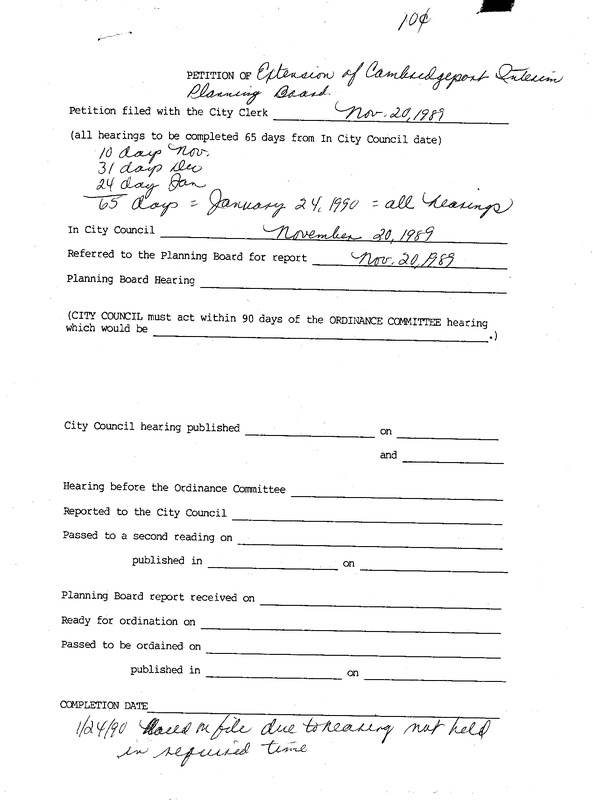 10¢
PETITION OF Extension of Cambridgeport Interim
Planning Board.
Petition filed with the City Clerk Nov. 20, 1989
(all hearings to be completed 65 days from In City Council date)
10 days Nov.
31 days Dec
24 day Jan
65 days = January 24, 1990 = all hearings
In City Council November 20, 1989
Referred to the Planning Board for report Nov. 20, 1989
Planning Board Hearing
(CITY COUNCIL must act within 90 days of the ORDINANCE COMMITTEE hearing
which would be .)
City Council hearing published on
and
Hearing before the Ordinance Committee
Reported to the City Council
Passed to a second reading on
published in on
Planning Board report received on
Ready for ordination on
Passed to be ordained on
published in on
COMPLETION DATE
1/24/90 Placed on file due to hearing not held
in required time